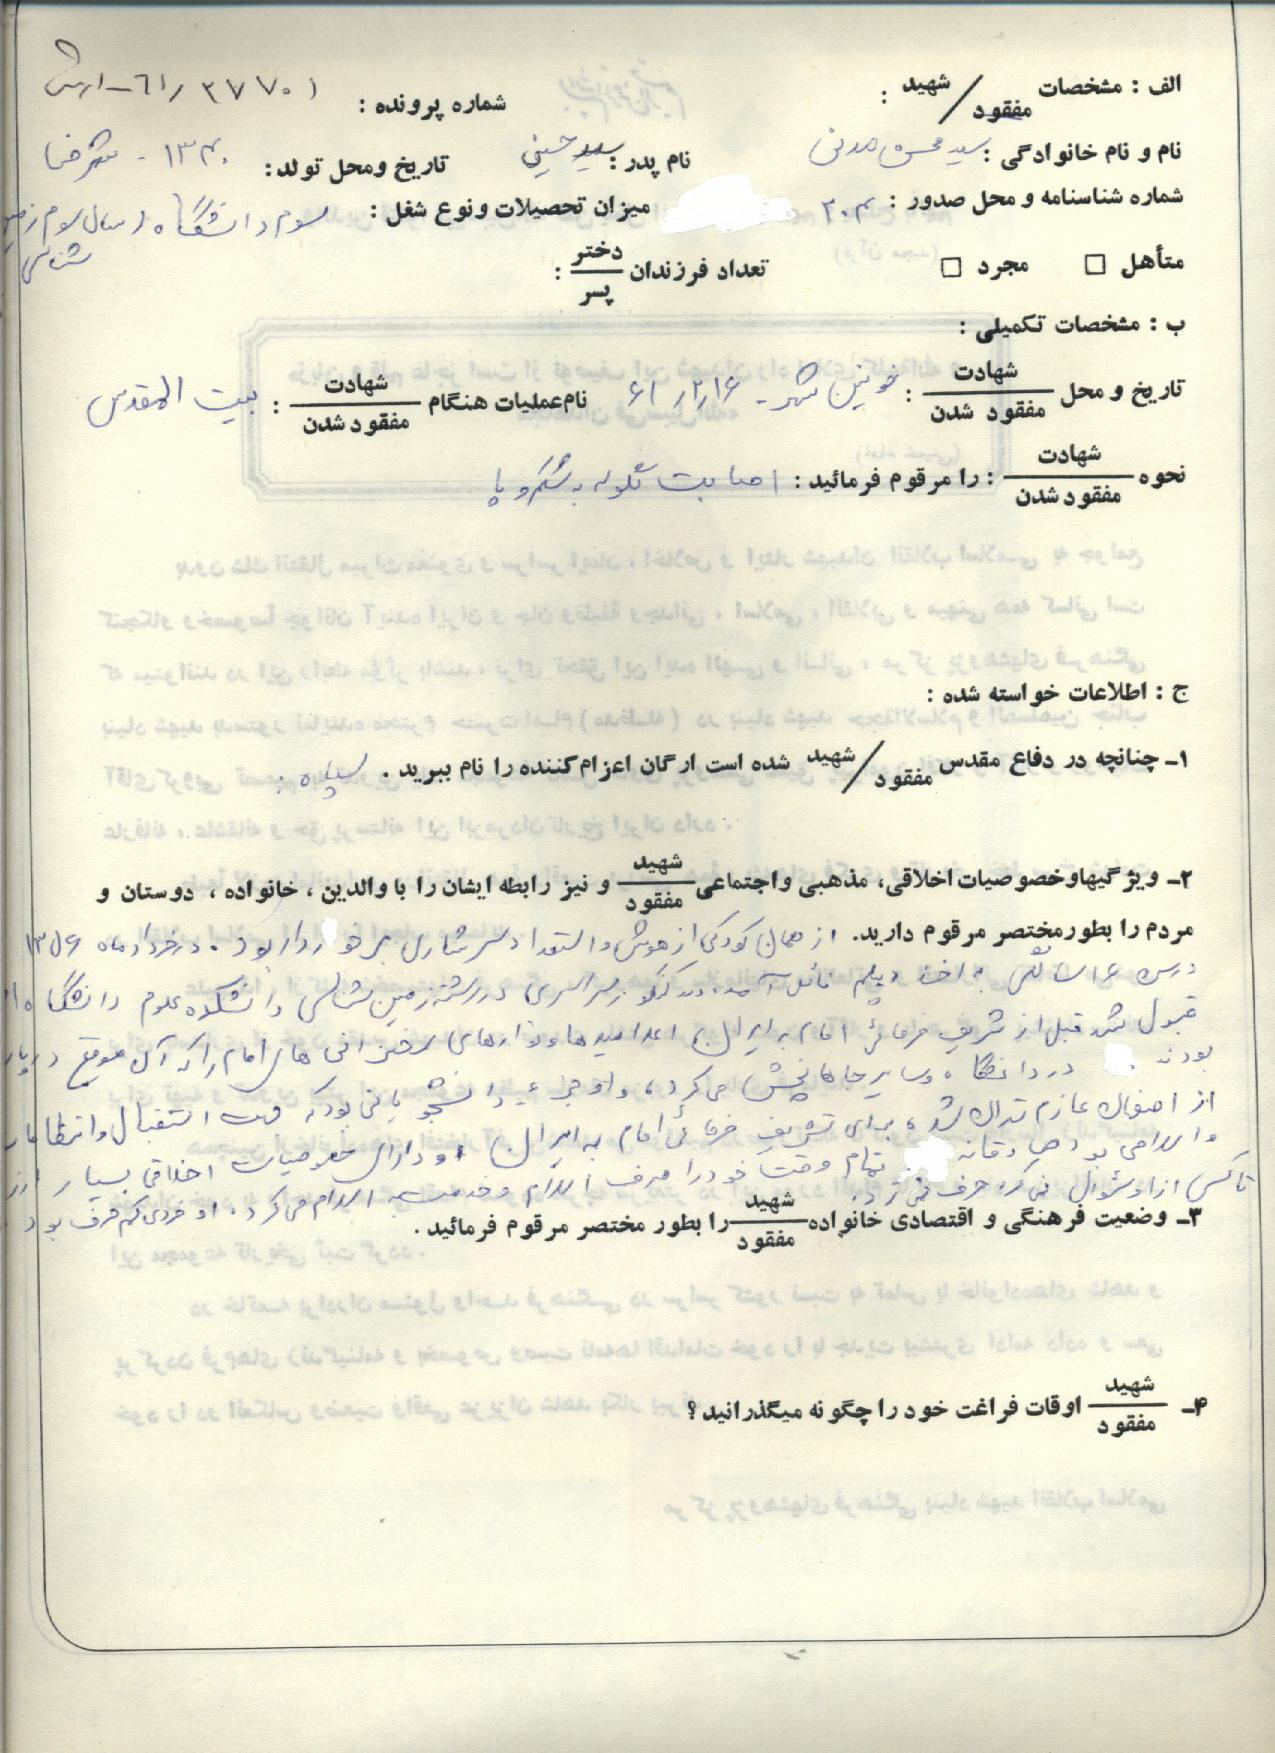 الف : مشخصات شهید / مفقود :
شماره پرونده : ۳۷۷۰۱
نام و نام خانوادگی : سید محسن مدنی
نام پدر : سید حسین
تاریخ ومحل تولد : ۱۳۴۰ - شهرضا
شماره شناسنامه و محل صدور : ۲۰۴
میزان تحصیلات و نوع شغل : سوم دانشگاه (سال سوم زمین شناسی
متأهل □ مجرد □ تعداد فرزندان دختر / پسر :
ب : مشخصات تکمیلی :
تاریخ و محل شهادت / مفقود شدن : خونین شهر - ۶۱/۲/۱۶
نام عملیات هنگام شهادت / مفقود شدن : بیت المقدس
نحوه شهادت / مفقود شدن : را مرقوم فرمائید : اصابت گلوله به شکم و پا
ج : اطلاعات خواسته شده :
۱ـ چنانچه در دفاع مقدس شهید / مفقود شده است ارگان اعزام کننده را نام ببرید . سپاه .
۲ـ ویژگیها و خصوصیات اخلاقی، مذهبی و اجتماعی شهید / مفقود و نیز رابطه ایشان را با والدین ، خانواده ، دوستان و
مردم را بطور مختصر مرقوم دارید. از همان کودکی از هوش و استعداد سرشاری برخوردار بود . در خرداد ماه ۱۳۵۶
در سن ۱۶ سالگی به اخذ دیپلم نائل آمد. در کنکور سراسری در رشته زمین شناسی دانشکده علوم دانشگاه
قبول شد قبل از تشریف فرمائی امام به ایران اعلامیه ها و نوارهای سخنرانی های امام را که آن موقع در پاریس
بودند در دانشگاه و سایر جاها پخش می کرد، و او جزء دانشجویانی بود که جهت استقبال و انتظامات
از اصفهان عازم تهران شد، برای تشریف فرمائی امام به ایران او دارای خصوصیات اخلاقی بسیار
و اسلامی بود صادقانه تمام وقت خود را صرف اسلام و خدمت به اسلام می کرد. او فردی کم حرف بود
تا کسی از او سئوال نمی کرد حرف نمی زد.
۳ـ وضعیت فرهنگی و اقتصادی خانواده شهید / مفقود را بطور مختصر مرقوم فرمائید .
۴ـ شهید / مفقود اوقات فراغت خود را چگونه میگذرانید ؟